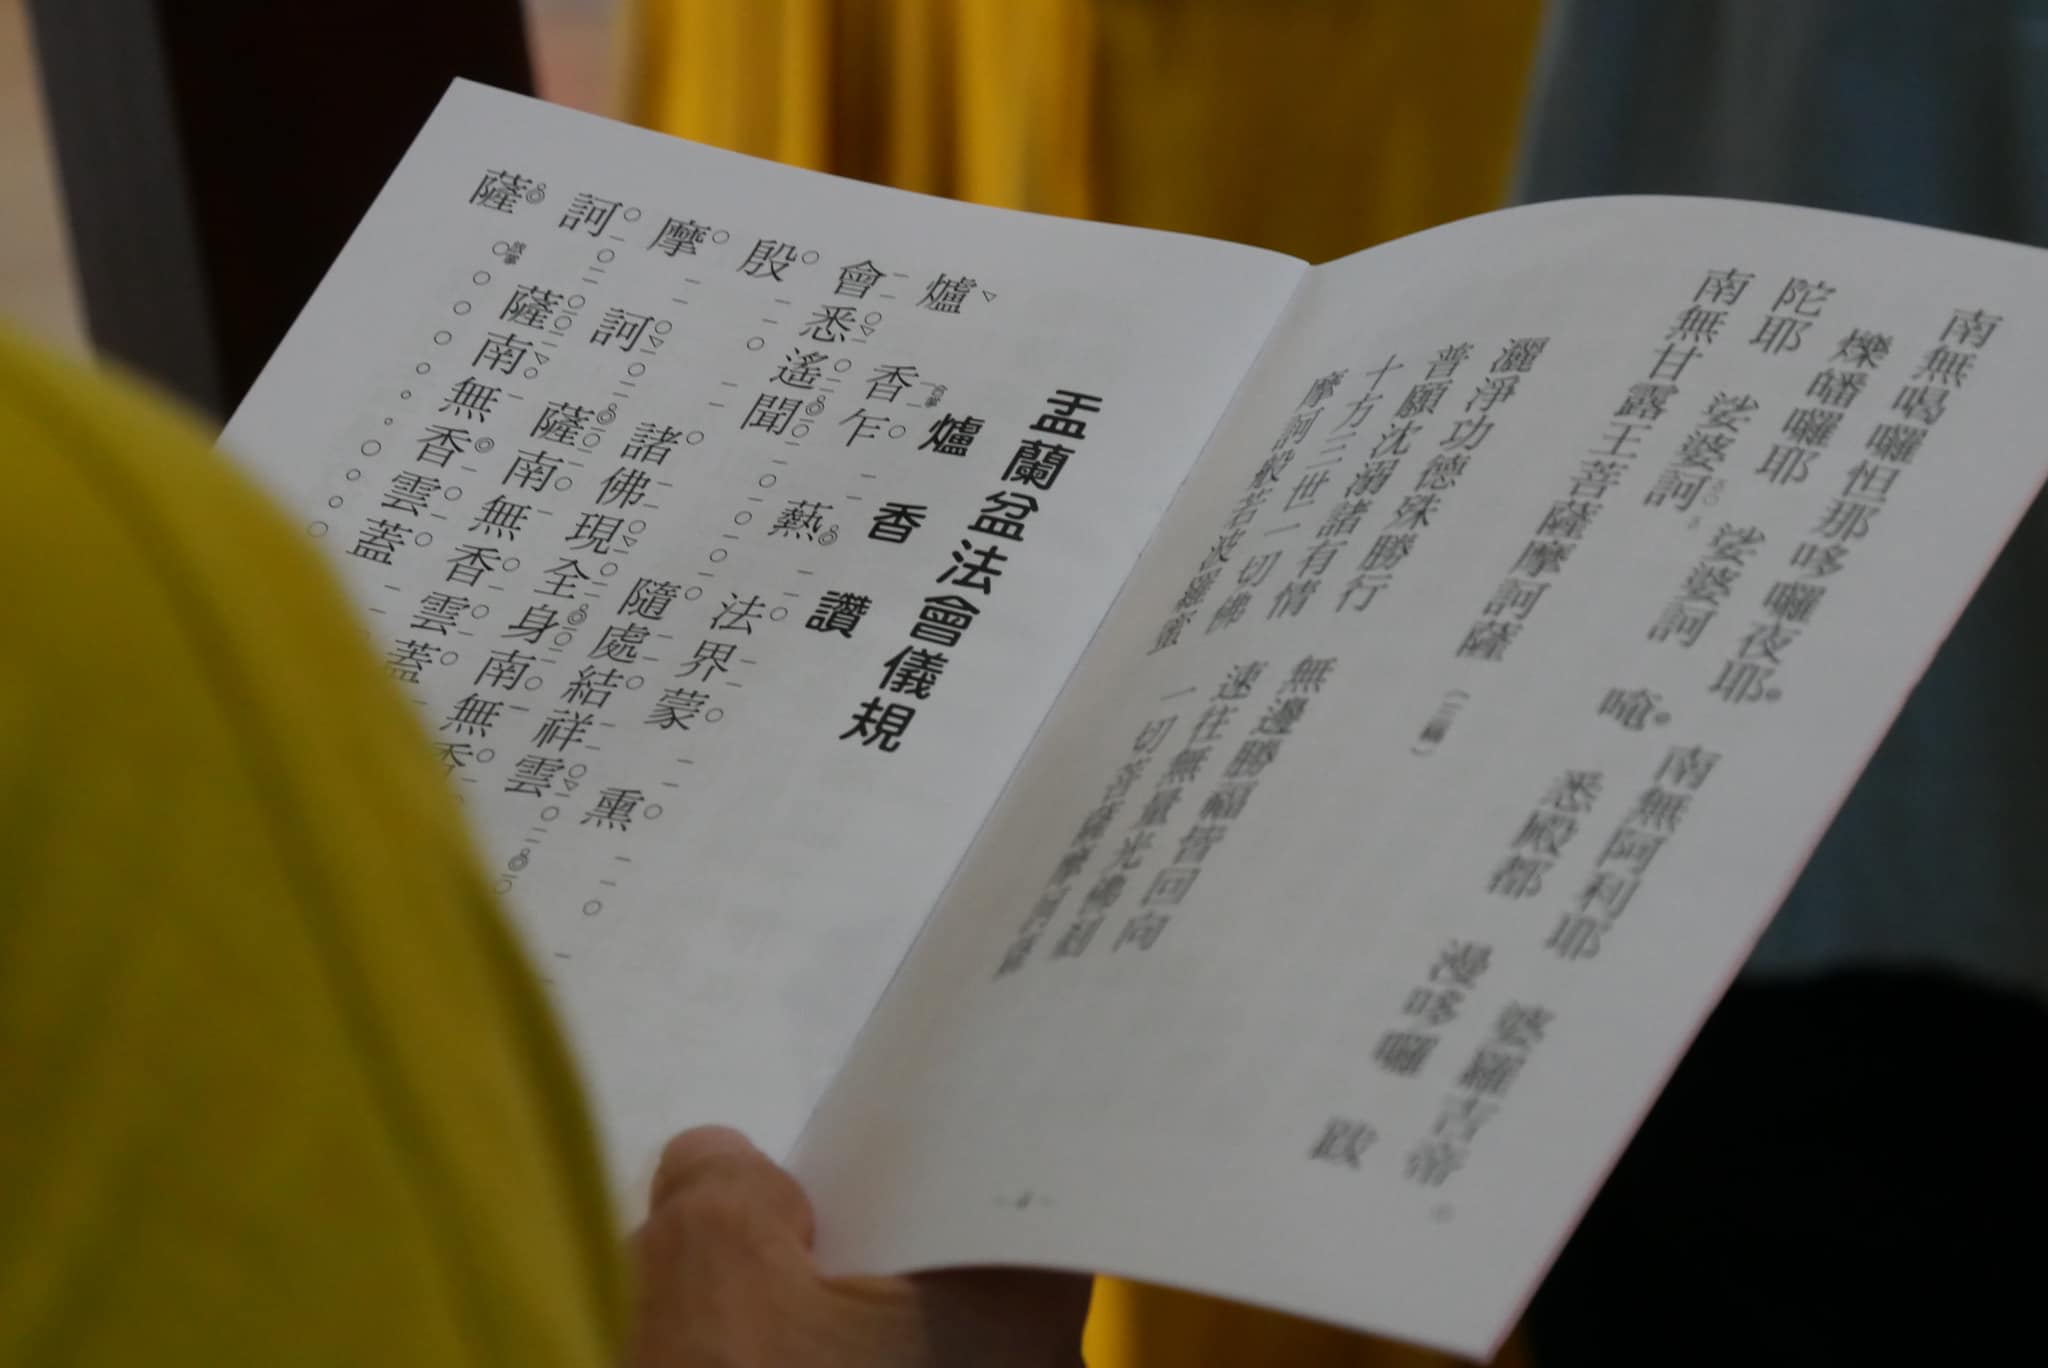 南無喝囉怛那哆囉夜耶 南無阿利耶 婆羅吉帝
爍皤囉耶 娑婆訶 唵 悉殿都 漫哆囉 跋
陀耶 娑婆訶
南無甘露王菩薩摩訶薩（三稱）
灑淨功德殊勝行 無邊勝福皆回向
普願沈溺諸有情 速往無量光佛剎
十方三世一切佛 一切菩薩摩訶薩
摩訶般若波羅蜜
盂蘭盆法會儀規
爐香讚
爐香乍爇法界蒙熏
會悉遙聞隨處結祥雲
殷諸佛現全身南無香
摩訶薩南無香雲蓋
訶薩南無香雲蓋
薩